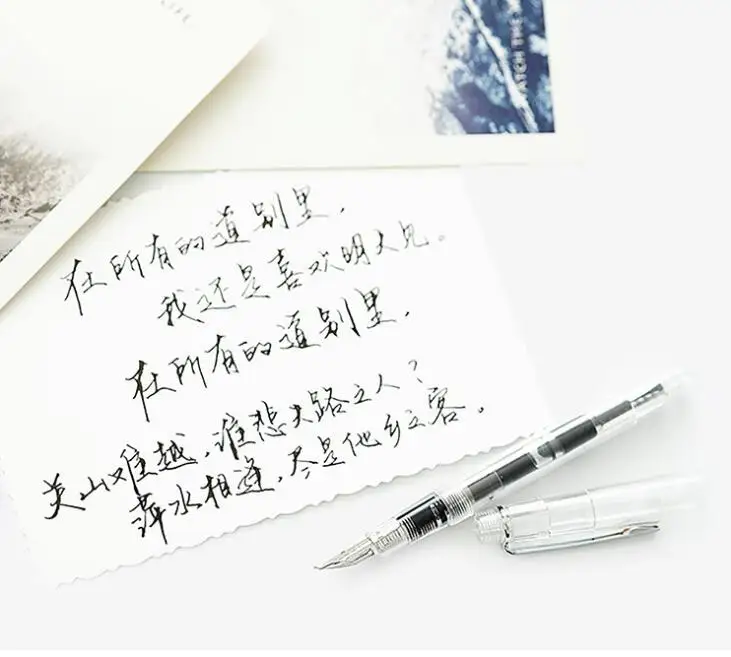 ATCH THE
在所有的道别里，
我还是喜欢明天见。
在所有的道别里，
关山难越，谁悲失路之人？
萍水相逢，尽是他乡之客。